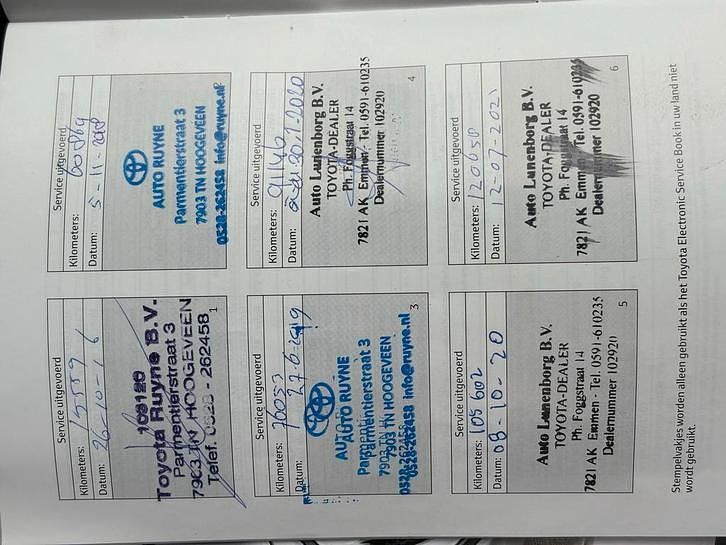 Service uitgevoerd
Kilometers: 15559
Datum: 26-10-16
109120
Toyota Ruyne B.V.
Parmentierstraat 3
7903 TN HOOGEVEEN
Telef. 0528 - 262458
1
Service uitgevoerd
Kilometers:
Datum: 5-11-2018
AUTO RUYNE
Parmentierstraat 3
7903 TN HOOGEVEEN
0528-262458 info@ruyne.nl
Service uitgevoerd
Kilometers: 70052
Datum: 27-6-2019
AUTO RUYNE
Parmentierstraat 3
7903 TN HOOGEVEEN
0528-262458 info@ruyne.nl
3
Service uitgevoerd
Kilometers: 91146
Datum: 2020
Auto Lunenborg B.V.
TOYOTA-DEALER
Ph. Foggstraat 14
7821 AK Emmen - Tel. 0591-610235
Dealernummer 102920
4
Service uitgevoerd
Kilometers: 105602
Datum: 08-10-20
Auto Lunenborg B.V.
TOYOTA-DEALER
Ph. Foggstraat 14
7821 AK Emmen - Tel. 0591-610235
Dealernummer 102920
5
Service uitgevoerd
Kilometers: 120650
Datum: 12-07-2021
Auto Lunenborg B.V.
TOYOTA-DEALER
Ph. Foggstraat 14
7821 AK Emmen - Tel. 0591-610235
Dealernummer 102920
6
Stempelvakjes worden alleen gebruikt als het Toyota Electronic Service Book in uw land niet
wordt gebruikt.